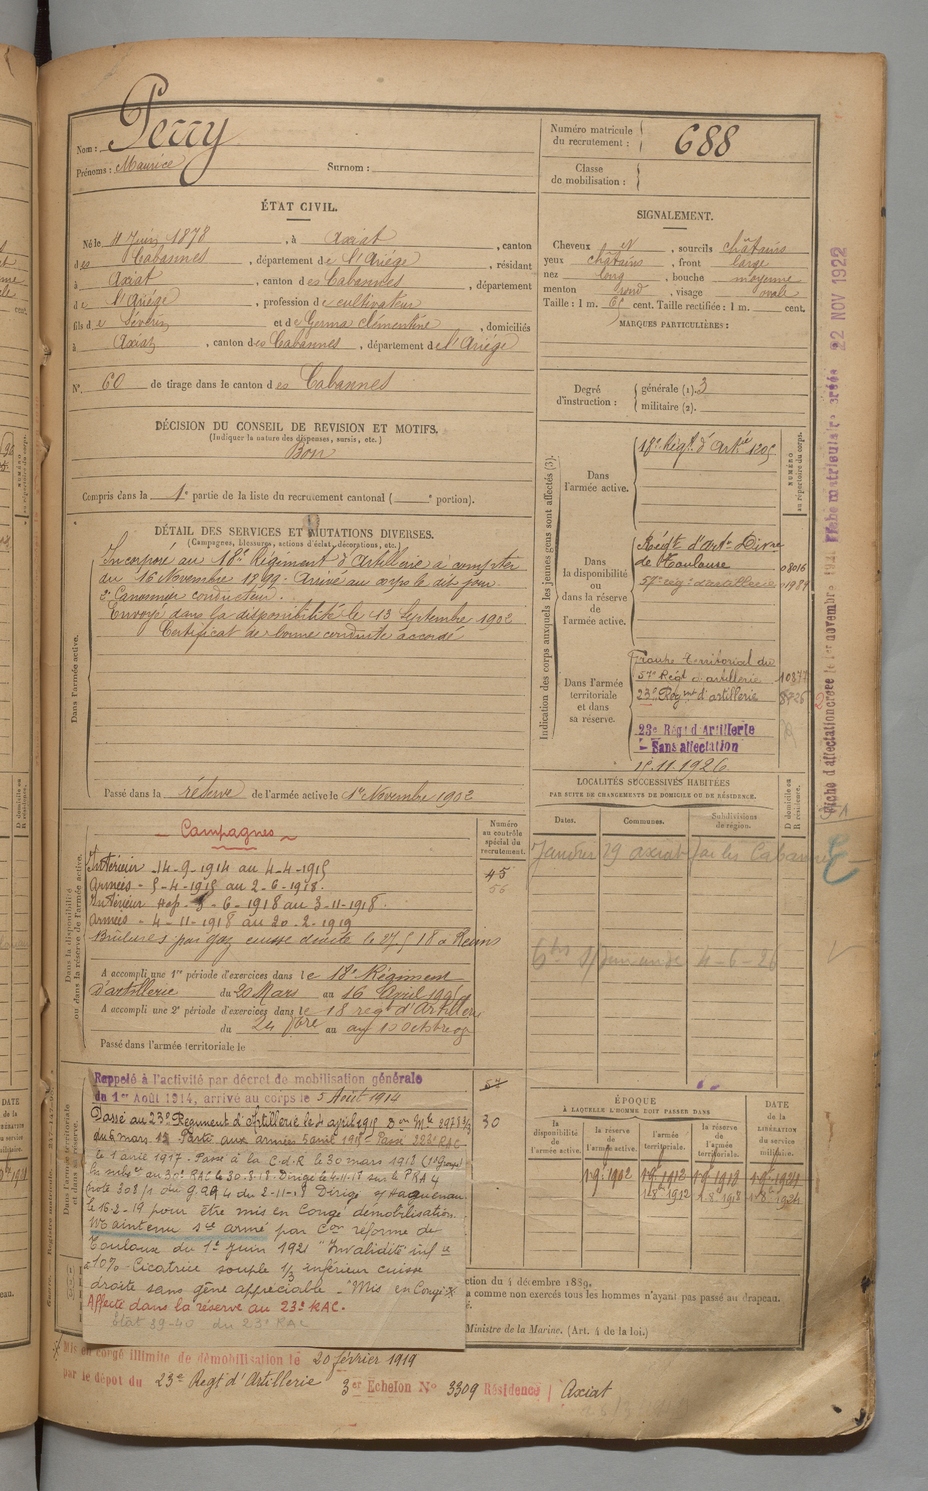 Nom : Perry
Prénoms : Maurice Surnom :
Numéro matricule du recrutement : 688
Classe de mobilisation :
ÉTAT CIVIL.
Né le 4 Juin 1878, à Axiat, canton
des Cabannes, département de l'Ariège, résidant
à Axiat, canton des Cabannes, département
de l'Ariège, profession de cultivateur
fils de Séverin et de Germa Clémentine, domiciliés
à Axiat, canton des Cabannes, département de l'Ariège
N° 60 de tirage dans le canton des Cabannes
SIGNALEMENT.
Cheveux et, sourcils châtains
yeux châtains, front large
nez long, bouche moyenne
menton rond, visage ovale
Taille : 1 m. 65 cent. Taille rectifiée : 1 m. cent.
MARQUES PARTICULIÈRES :
Degré d'instruction : générale (1). 3
militaire (2).
DÉCISION DU CONSEIL DE REVISION ET MOTIFS.
(Indiquer la nature des dispenses, sursis, etc.)
Bon
Compris dans la 1e partie de la liste du recrutement cantonal ( e portion).
DÉTAIL DES SERVICES ET MUTATIONS DIVERSES.
(Campagnes, blessures, actions d'éclat, décorations, etc.)
Dans l'armée active.
Incorporé au 18e Régiment d'Artillerie à compter
du 16 Novembre 1899. Arrivé au corps le dit jour
2e Canonnier conducteur.
Envoyé dans la disponibilité le 13 Septembre 1902
Certificat de bonne conduite accordé
Passé dans la réserve de l'armée active le 1er Novembre 1902
Indication des corps auxquels les jeunes gens sont affectés (3).
NUMÉRO au répertoire du corps.
Dans l'armée active.
18e Régt d'Artie 1205
Dans la disponibilité ou dans la réserve de l'armée active.
Régt d'Arte
de Toulouse 08016
57e rég. d'artillerie 01989
Dans l'armée territoriale et dans sa réserve.
territorial du
57e Régt d'artillerie 10877
23e Régnt d'artillerie
23e Régt d'Artillerie
Sans affectation
1er.11.1926
Fiche matriculaire 22 NOV 1922
Fiche d'affectation créée le 1er novembre
LOCALITÉS SUCCESSIVES HABITÉES
PAR SUITE DE CHANGEMENTS DE DOMICILE OU DE RÉSIDENCE.
D domicile ou R résidence.
Dates. Communes. Subdivisions de région.
Janvier 29 Axiat par les Cabannes
4-6-26
Dans la disponibilité ou dans la réserve de l'armée active.
Numéro au contrôle spécial du recrutement.
45
Campagnes
Intérieur 14-9-1914 au 4-4-1915
Armées - 5-4-1915 au 2-6-1918.
Intérieur Hop - 3-6-1918 au 3-11-1918.
Armées - 4-11-1918 au 20-2-1919
Brûlures par gaz cuisse droite le 27 5 18 à Reims
A accompli une 1re période d'exercices dans le 18e Régiment
d'artillerie du 20 Mars au 16 Avril
A accompli une 2e période d'exercices dans le 18 regt d'Artillerie
du 24
Passé dans l'armée territoriale le
Rappelé à l'activité par décret de mobilisation générale
du 1er Août 1914, arrivé au corps le 5 Août 1914
Passé au 23e Régiment d'Artillerie le 4 avril 1915
du 6 mars Parti aux armées 5 avril 1915 Passé 223e RAC
le 1 avril 1917. Passé à la C.d.R le 30 mars 1918
au 30e RAC le 30-8-18. Dirigé le 4-11-18 sur le PRA 4
du 2-11-18 Dirigé s/ Haguenau
le 16-2-19 pour être mis en Congé démobilisation.
Maintenu sce armé par Con réforme de
Toulouse du 1er Juin 1921 "Invalidité infre
à 10% Cicatrice souple 1/3 inférieur cuisse
droite sans gêne appréciable - Mis en Congé X
Affecté dans la réserve au 23e RAC.
état 39-40 du 23e RAC
30
ÉPOQUE
À LAQUELLE L'HOMME DOIT PASSER DANS
la disponibilité de l'armée active.
la réserve de l'armée active.
l'armée territoriale.
la réserve de l'armée territoriale.
DATE de la LIBÉRATION du service militaire.
1 9bre 1902 1 9bre 1912 1 9bre 1918 1 9bre 1924
1 8bre 1912 1 8bre 1918 1 8bre 1924
ction du 4 décembre 1889.
a comme non exercés tous les hommes n'ayant pas passé au drapeau.
Ministre de la Marine. (Art. 4 de la loi.)
Mis en congé illimité de démobilisation le 20 février 1919
par le dépôt du 23e Regt d'Artillerie 3er Echelon N° 3309 Résidence Axiat